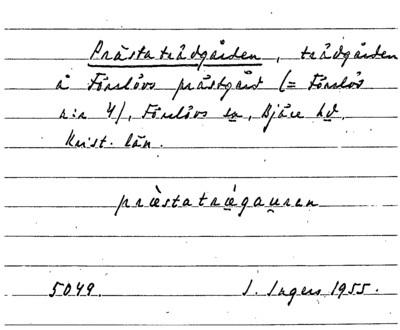 Prästaträdgården, trädgården
å Förslövs prästgård (= Förslöv
n:r 4), Förslövs sn, Bjäre hd.
Krist. län.
præ̀statræ̀gau̯ren
5049. I. Ingers 1955.